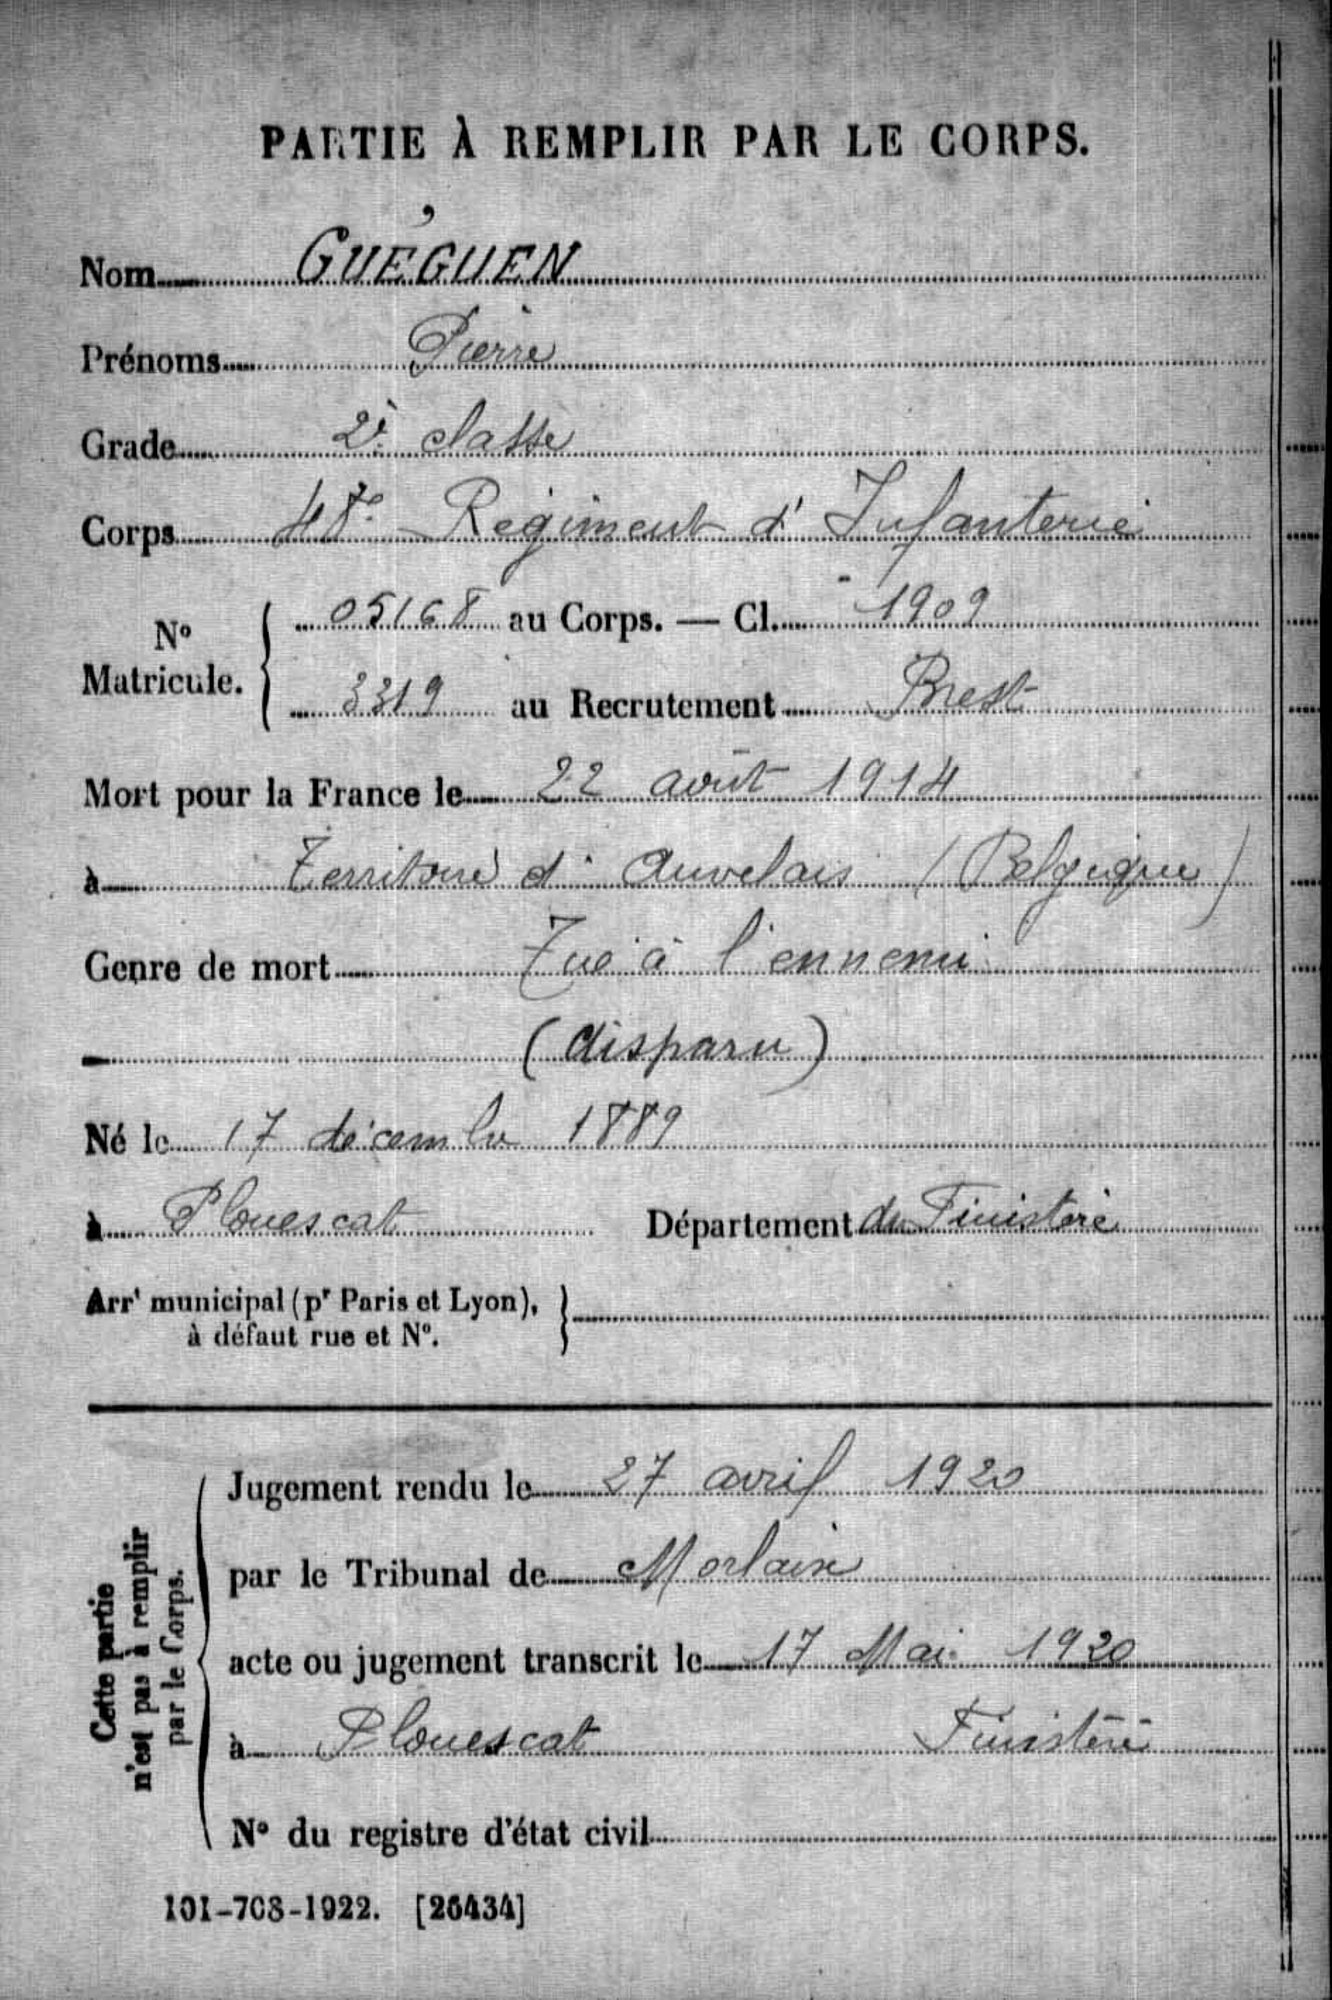 PARTIE À REMPLIR PAR LE CORPS.
Nom GUÉGUEN
Prénoms Pierre
Grade 2è classe
Corps 48e Régiment d'Infanterie
No Matricule. { 05168 au Corps. — Cl. 1909
3319 au Recrutement Brest
Mort pour la France le 22 août 1914
à Territoire d'Auvelais (Belgique)
Genre de mort Tué à l'ennemi
(disparu)
Né le 17 décembre 1889
à Plouescat Département du Finistère
Arrt municipal (pr Paris et Lyon), à défaut rue et No. }
Cette partie n'est pas à remplir par le Corps.
Jugement rendu le 27 avril 1920
par le Tribunal de Morlaix
acte ou jugement transcrit le 17 Mai 1920
à Plouescat Finistère
No du registre d'état civil
101-708-1922. [26434]